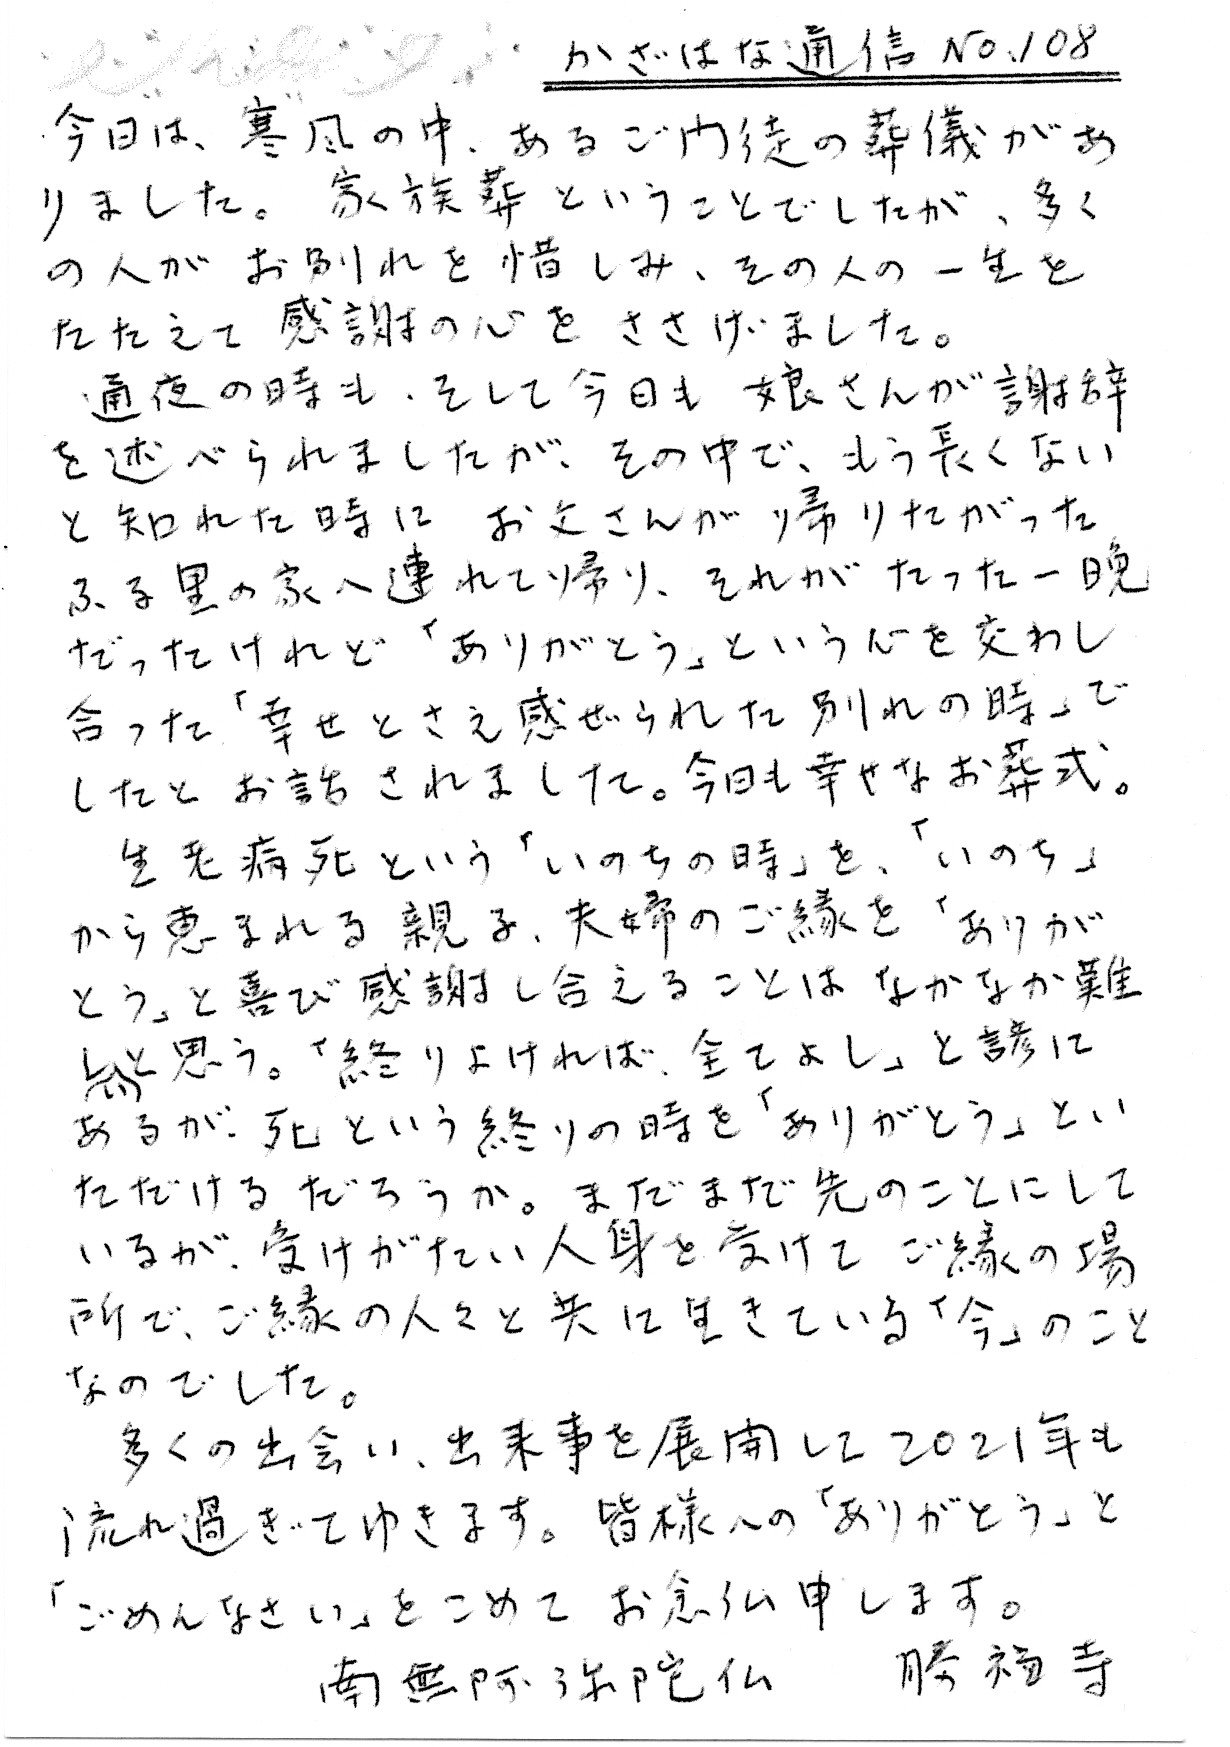 かざはな通信 No.108
今日は、寒風の中、あるご門徒の葬儀があ
りました。家族葬ということでしたが、多く
の人がお別れを惜しみ、その人の一生を
たたえて感謝の心をささげました。
通夜の時も、そして今日も娘さんが謝辞
を述べられましたが、その中で、もう長くない
と知れた時にお父さんが帰りたがった
ふる里の家へ連れて帰り、それがたった一晩
だったけれど「ありがとう」という心を交わし
合った「幸せとさえ感ぜられた別れの時」で
したとお話されました。今日も幸せなお葬式。
生老病死という「いのちの時」を、「いのち」
から恵まれる親子、夫婦のご縁を「ありが
とう」と喜び感謝し合えることはなかなか難
しいと思う。「終りよければ、全てよし」と諺に
あるが、死という終りの時を「ありがとう」とい
ただけるだろうか。まだまだ先のことにして
いるが、受けがたい人身を受けてご縁の場
所で、ご縁の人々と共に生きている「今」のこと
なのでした。
多くの出会い、出来事を展開して2021年も
流れ過ぎてゆきます。皆様への「ありがとう」と
「ごめんなさい」をこめてお念仏申します。
南無阿弥陀仏 勝福寺